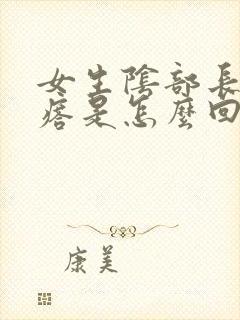 女生陰部長
痞是怎麼回
康美